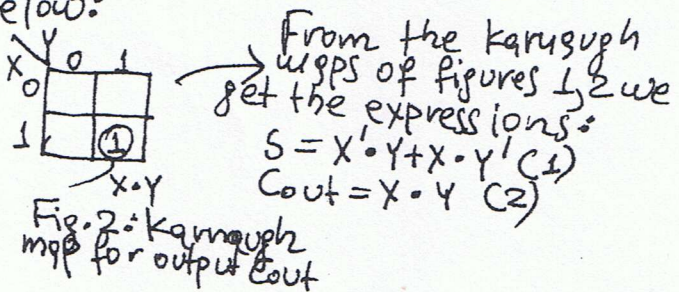 elow:
Y
X 0 1
0
1 1
X•Y
Fig.2: Karnaugh
map for output Cout
From the Karnaugh
maps of figures 1,2 we
get the expressions:
S = X'•Y+X•Y' (1)
Cout = X•Y (2)